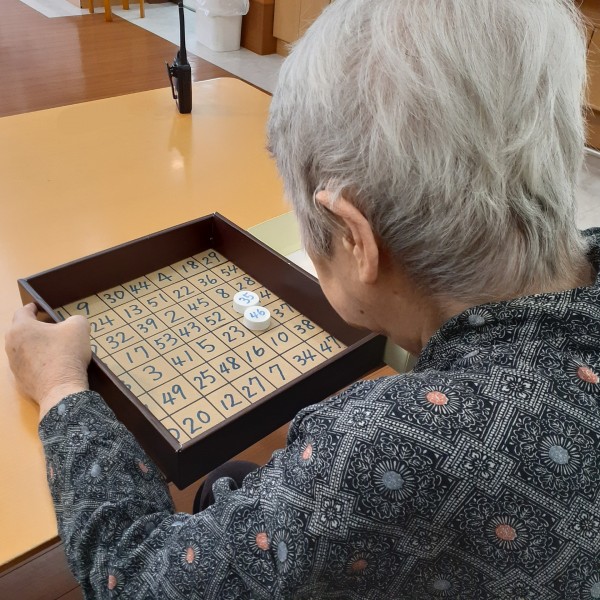 9 30 44 4 18 29
24 13 51 22 36 54
32 39 2 45 8 28
17 53 43 52 35
3 41 5 23 46
49 25 48 16 10 38
20 12 27 7 34 47